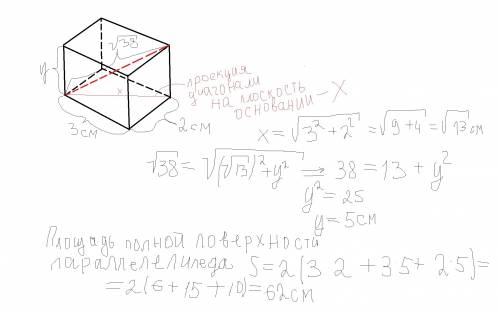 √38
y
x
проекция
диагонали
на плоскость
основании - X
3см
2см
x = √3² + 2² = √9+4 = √13 см
√38 = √(√13)² + y² ⇒ 38 = 13 + y²
y² = 25
y = 5см
Площадь полной поверхности
параллелепипеда S = 2(3 2 + 3 5 + 2·5) =
= 2(6 + 15 + 10) = 62см